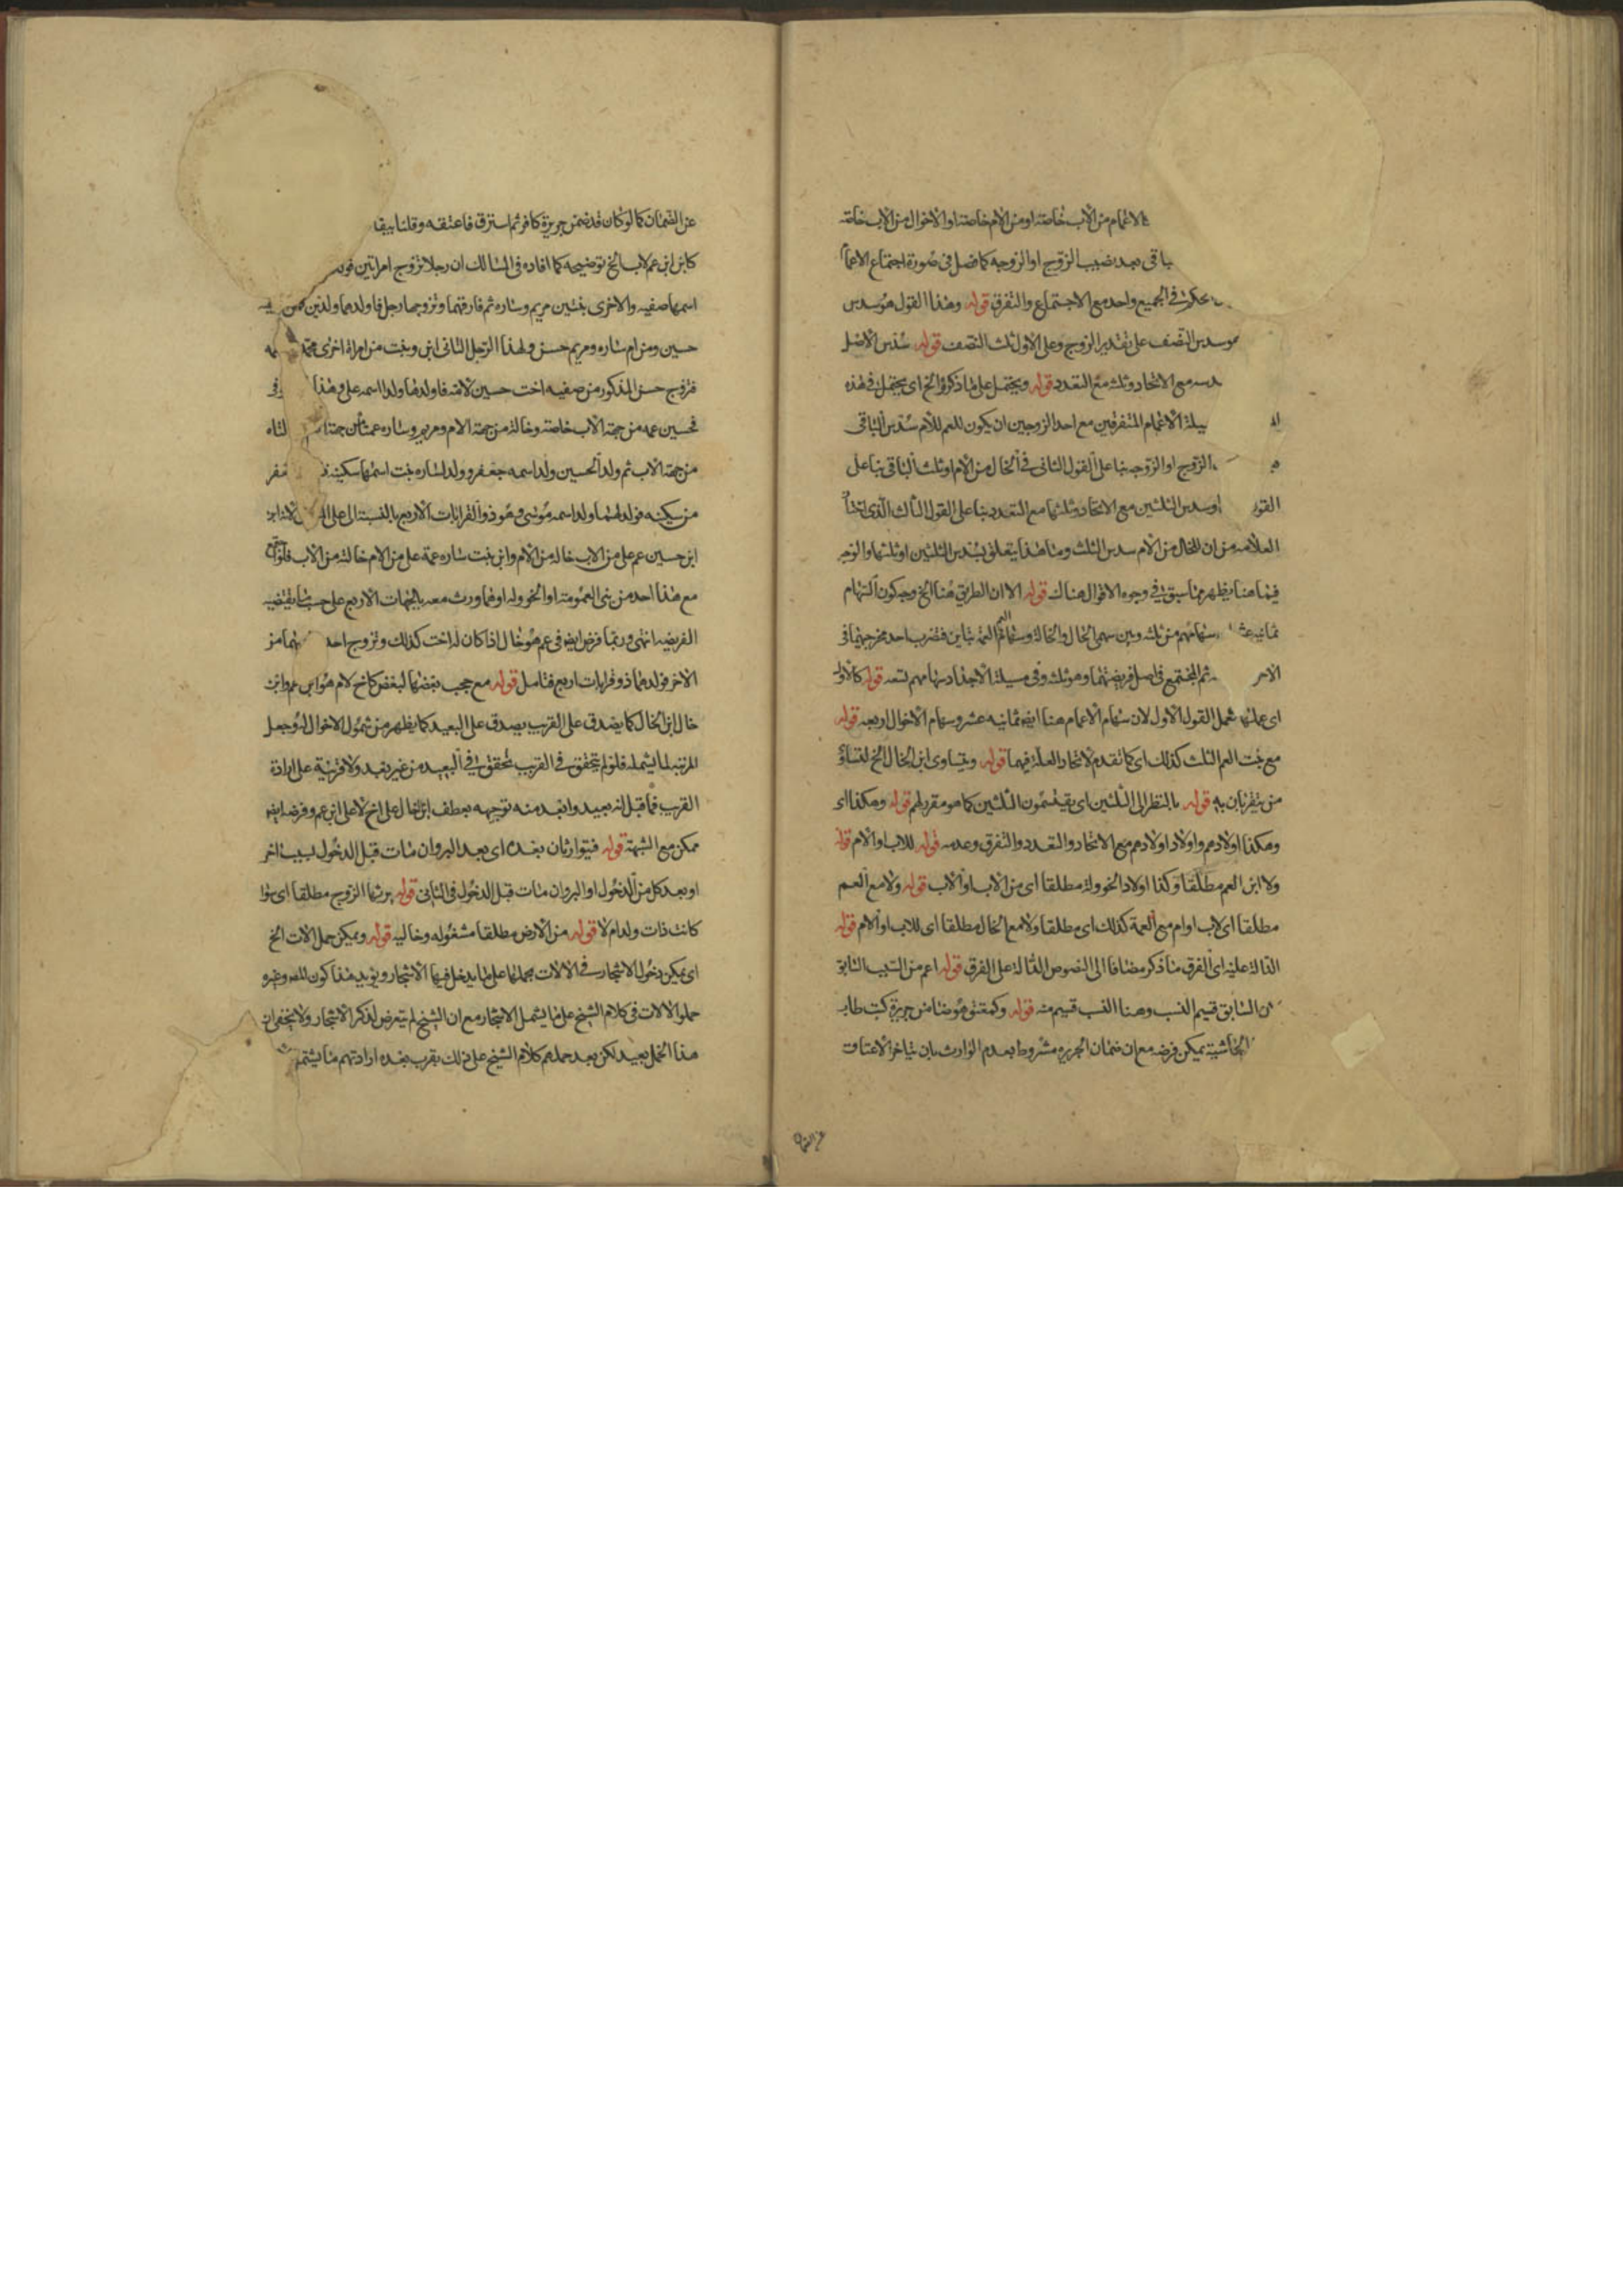 الاعمام من الاب خاصته او من الام خاصته او الاخوال من الاب خاصته
باقی بعد نصيب الزوج او الزوجه كما فصل فی صورة اجتماع الاعما
فی الجميع واحد مع الاجتماع والتفرق قوله وهذا القول هو سدس
هو سدس النصف على تقدير الزوج وعلى الاول ثلث النصف قوله سدس الاصل
مع الاتحاد وثلثه مع التعدد قوله ويحتمل على ما ذكروا الخ ای يحتمل فی هذه
الاعمام المتفرقين مع احد الزوجين ان يكون للعم للام سدس الباقی
الزوج او الزوجه بنا على القول الثانی فی الخال من الام او ثلث الباقی بنا على
القو او سدس الثلثين مع الاتحاد وثلثها مع التعدد بنا على القول الثالث الذی
العلامه من ان للخال من الام سدس الثلث وما هذا يتعلق بسدس الثلثين او ثلثهما والوجه
فيما هنا يظهر مما سبق فی وجوه الاقوال هناك قوله الا ان الطريق هنا الخ وجه كون السهام
ثمانيه سهامهم من ثلثه وبين سهمی الخال والخاله وسهام العم العمة تباين فتضرب احد مخرجيهما فی
الاخر ثم المجتمع فی اصل فريضتهما وهو ثلثه وفی مسيلة الاجداد سهامهم تسعه قوله كالاول
ای على ما شمل القول الاول لان سهام الاعمام هنا ايضا ثمانيه عشر وسهام الاخوال اربعه قوله
مع بنت العم الثلث كذلك ای كما تقدم لاتحاد العلة فيهما قوله ويتساوى ابن الخال الخ لتساوی
من يتقربان به قوله بالنظر الى الثلثين ای يقتسمون الثلثين كما هو مقرر لهم قوله وهكذا ای
وهكذا اولادهم واولاد اولادهم مع الاتحاد والتعدد والتفرق وعدمه قوله للاب او الام قوله
ولا ابن العم مطلقا وكذا اولاد الخوولة مطلقا ای من الاب او الاب قوله ولا مع العم
مطلقا ای لاب او ام مع العمة كذلك ای مطلقا ولا مع الخال مطلقا ای للاب او الام قوله
الدالة عليه ای الفرق ما ذكر مضافا الى النصوص الدالة على الفرق قوله اعم من السبب السابق
السابق قسيم النسب وهنا النسب قسيم منه قوله وكمعتق هو ضامن جريرة كتب طاب
الحاشية يمكن فرضه مع ان ضمان الجريره مشروط بعدم الوارث بان يتاخر الاعتاق
عن الضمان كما لو كان قد ضمن جريرة كافر ثم استرق فاعتقه وقلنا ببقا
كابن ابن عم لاب الخ توضيحه كما افاده فی المسالك ان رجلا تزوج امراتين فولد
اسمها صفيه والاخرى بنتين مريم وساره ثم فارقهما وتزوجها رجل فاولدهما ولدين فمن
حسين ومن ام ساره ومريم حسن ولهذا الرجل الثانی ابن وبنت من امراة اخرى محمد
فتزوج حسن المذكور من صفيه اخت حسين لامه فاولدها ولدا اسمه علی وهذا
فحسين عمه من جهة الاب خاصته وخاله من جهة الام ومريم وساره عمتاه من جهة
من جهة الاب ثم ولد لحسين ولد اسمه جعفر وولد لساره بنت اسمها سكينه
من سكينه فولد لهما ولد اسمه موسى وهو ذو القرابات الاربع بالنسبة الى على لانه ابن
ابن حسين عم على من الاب خاله من الام وابن بنت ساره عمة على من الام خالته من الاب
مع هذا احد من بنی العمومة او الخووله او هما ورث معه بالجهات الاربع على حسب ما يقتضيه
الفريضه انتهى وربما فرض ايضا فی عم هو خال اذا كان له اخت كذلك وتزوج احد هما من
الاخر فولدهما ذو قرابات اربع فتامل قوله مع حجب بعضها لبعض كاخ لام هو ابن عم وابن
خال ابن الخال كما يصدق على القريب يصدق على البعيد كما يظهر من شمول الاخوال له وجعل
المرتبه لما يشمله فلو لم يتحقق فی القريب تحقق فی البعيد من غير بعد ولا قرينة على ارادة
القريب فما قيل انه بعيد وابعد منه توجيهه بعطف ابن الخال على اخ لا على ابن عم وفرضه ايضا
ممكن مع الشبهة قوله فيتوارثان بعده ای بعد البر وان مات قبل الدخول بسبب اخر
او بعد كل من الدخول او البر وان مات قبل الدخول فی الثانی قوله يرثها الزوج مطلقا ای سوا
كانت ذات ولد ام لا قوله من الارض مطلقا مشغوله وخاليه قوله ويمكن حمل الالات الخ
ای يمكن دخول الاشجار فی الالات بحملها على ما يدخل فيها الاشجار ويؤيد هذا كون المص وغيره
حملوا الالات فی كلام الشيخ على ما يشمل الاشجار مع ان الشيخ لم يتعرض لذكر الاشجار ولا يخفى ان
هذا الحمل بعيد لكن بعد حملهم كلام الشيخ على ذلك يقرب بعده ارادتهم ما يشتمل